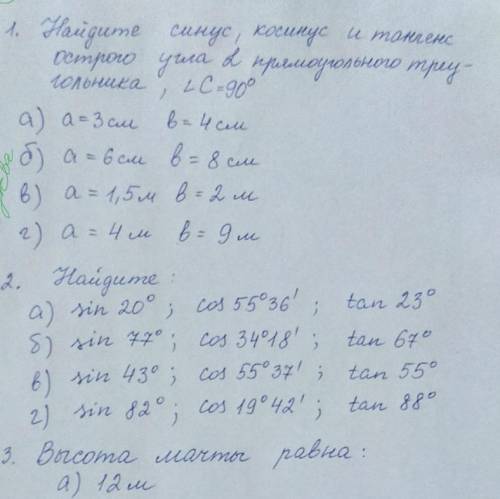 1. Найдите синус, косинус и тангенс
острого угла α прямоугольного треу-
гольника, ∠C=90°
а) a=3см b=4см
б) a=6см b=8см
в) a=1,5м b=2м
г) a=4м b=9м
2. Найдите:
а) sin 20°; cos 55°36'; tan 23°
б) sin 77°; cos 34°18'; tan 67°
в) sin 43°; cos 55°37'; tan 55°
г) sin 82°; cos 19°42'; tan 88°
3. Высота мачты равна:
а) 12м